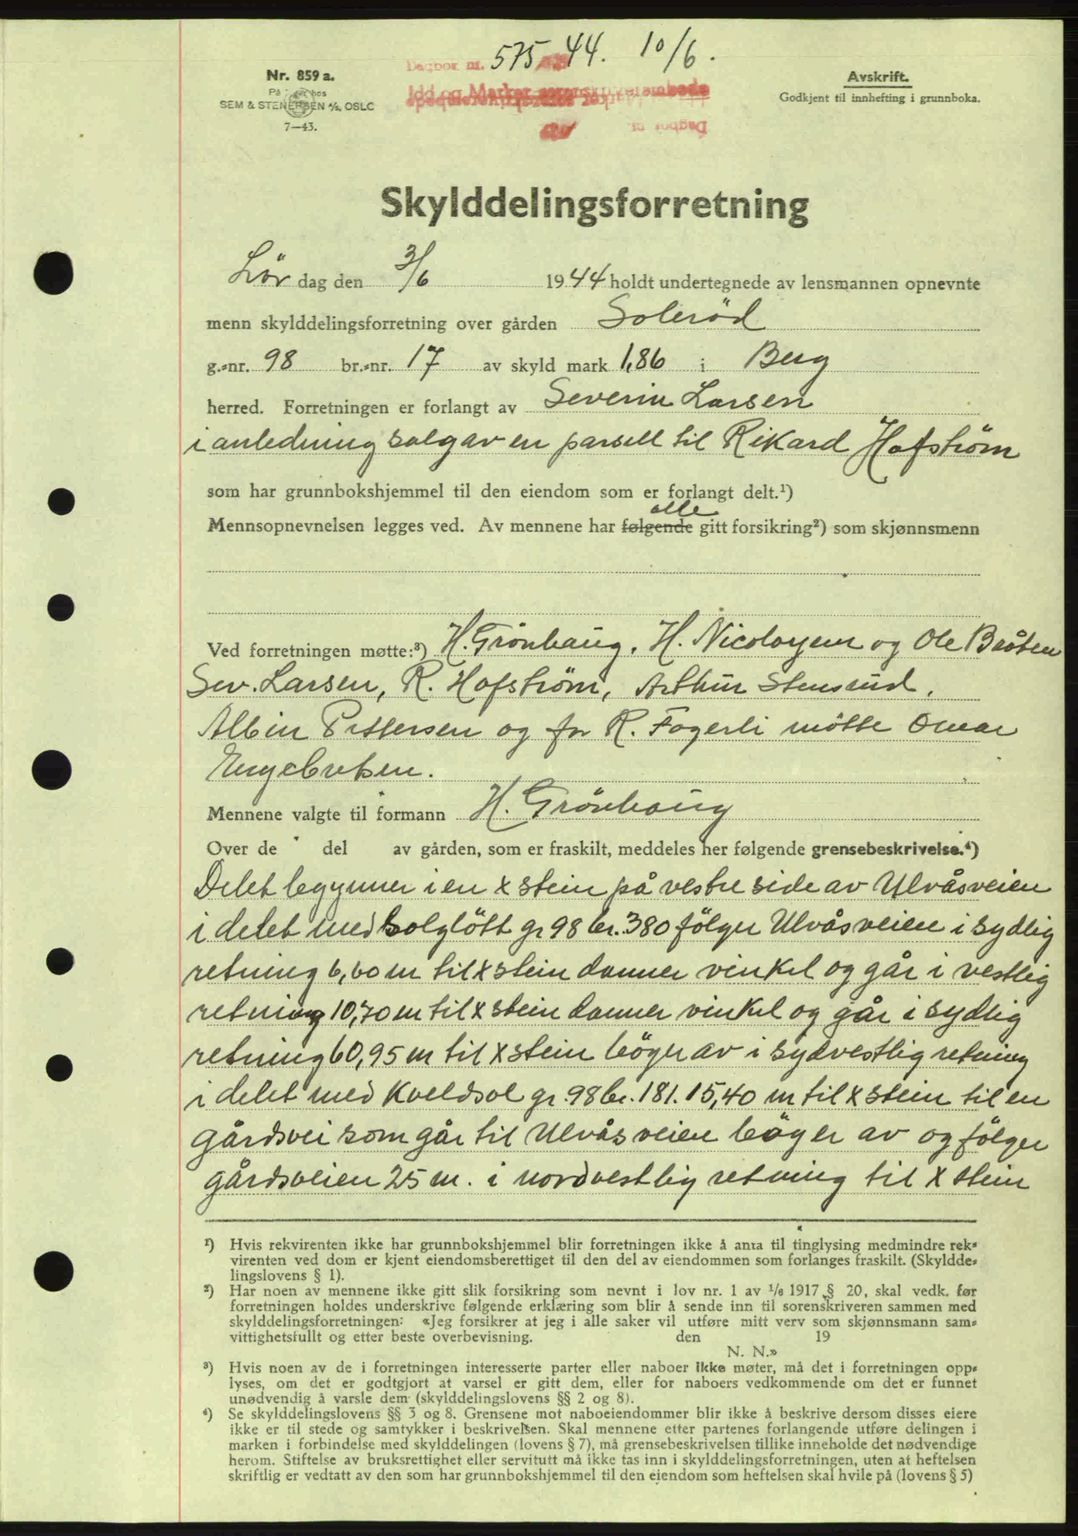 Nr. 859 a.
SEM & STENERSEN A/S, OSLO
7—43.
Dagbok nr. 575 44. 10/6.
Idd og Marker sorenskriverembede
Dagbok nr
Avskrift.
Godkjent til innhefting i grunnboka.
Skylddelingsforretning
Lör dag den 3/6 1944 holdt undertegnede av lensmannen opnevnte
menn skylddelingsforretning over gården Solerød
g.-nr. 98 br.-nr. 17 av skyld mark 1,86 i Berg
herred. Forretningen er forlangt av Severin Larsen
i anledning salg av en parsell til Rikard Hafstrøm
som har grunnbokshjemmel til den eiendom som er forlangt delt.¹)
alle
Mennsopnevnelsen legges ved. Av mennene har følgende gitt forsikring²) som skjønnsmenn
Ved forretningen møtte:³) H. Grönhaug, H. Nicolaysen og Ole Bråten
Sev. Larsen, R. Hafstrøm, Arthur Stensrud,
Albin Pettersen og for R. Fagerli møtte Omar
Engebretsen.
Mennene valgte til formann H. Grönhaug
Over de del av gården, som er fraskilt, meddeles her følgende grensebeskrivelse.⁴)
Delet begynner i en x stein på vestre side av Ulvåsveien
i delet med Solglött gr 98 br. 380 fölger Ulvåsveien i sydlig
retning 6,60 m til x stein danner vinkel og går i vestlig
retning 10,70 m til x stein danner vinkel og går i sydlig
retning 60,95 m til x stein böyer av i sydvestlig retning
i delet med Kveldsol gr. 98 br. 181. 15,40 m til x stein til en
gårdsvei som går til Ulvåsveien böyer av og fölger
gårdsveien 25 m. i nordvestlig retning til x stein
¹) Hvis rekvirenten ikke har grunnbokshjemmel blir forretningen ikke å anta til tinglysing medmindre rek-
virenten ved dom er kjent eiendomsberettiget til den del av eiendommen som forlanges fraskilt. (Skyldde-
lingslovens § 1).
²) Har noen av mennene ikke gitt slik forsikring som nevnt i lov nr. 1 av 1/6 1917 § 20, skal vedk. før
forretningen holdes underskrive følgende erklæring som blir å sende inn til sorenskriveren sammen med
skylddelingsforretningen: «Jeg forsikrer at jeg i alle saker vil utføre mitt verv som skjønnsmann sam-
vittighetsfullt og etter beste overbevisning. den 19
N. N.»
³) Hvis noen av de i forretningen interesserte parter eller naboer ikke møter, må det i forretningen opp-
lyses, om det er godtgjort at varsel er gitt dem, eller for naboers vedkommende om det er funnet
unødvendig å varsle dem (skylddelingslovens §§ 2 og 8).
⁴) Se skylddelingslovens §§ 3 og 8. Grensene mot naboeiendommer blir ikke å beskrive dersom disses eiere
ikke er til stede og samtykker i beskrivelsen. Skal mennene etter partenes forlangende utføre delingen i
marken i forbindelse med skylddelingen (lovens § 7), må grensebeskrivelsen tillike inneholde det nødvendige
herom. Stiftelse av bruksrettighet eller servitutt må ikke tas inn i skylddelingsforretningen, uten at heftelsen
skriftlig er vedtatt av den som har grunnbokshjemmel til den eiendom som heftelsen skal hvile på (lovens § 5)